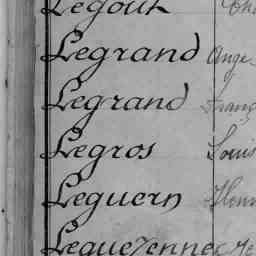 Legout
Legrand Ange
Legrand Franç
Legros Louis
Leguern Henr
Leguezennec